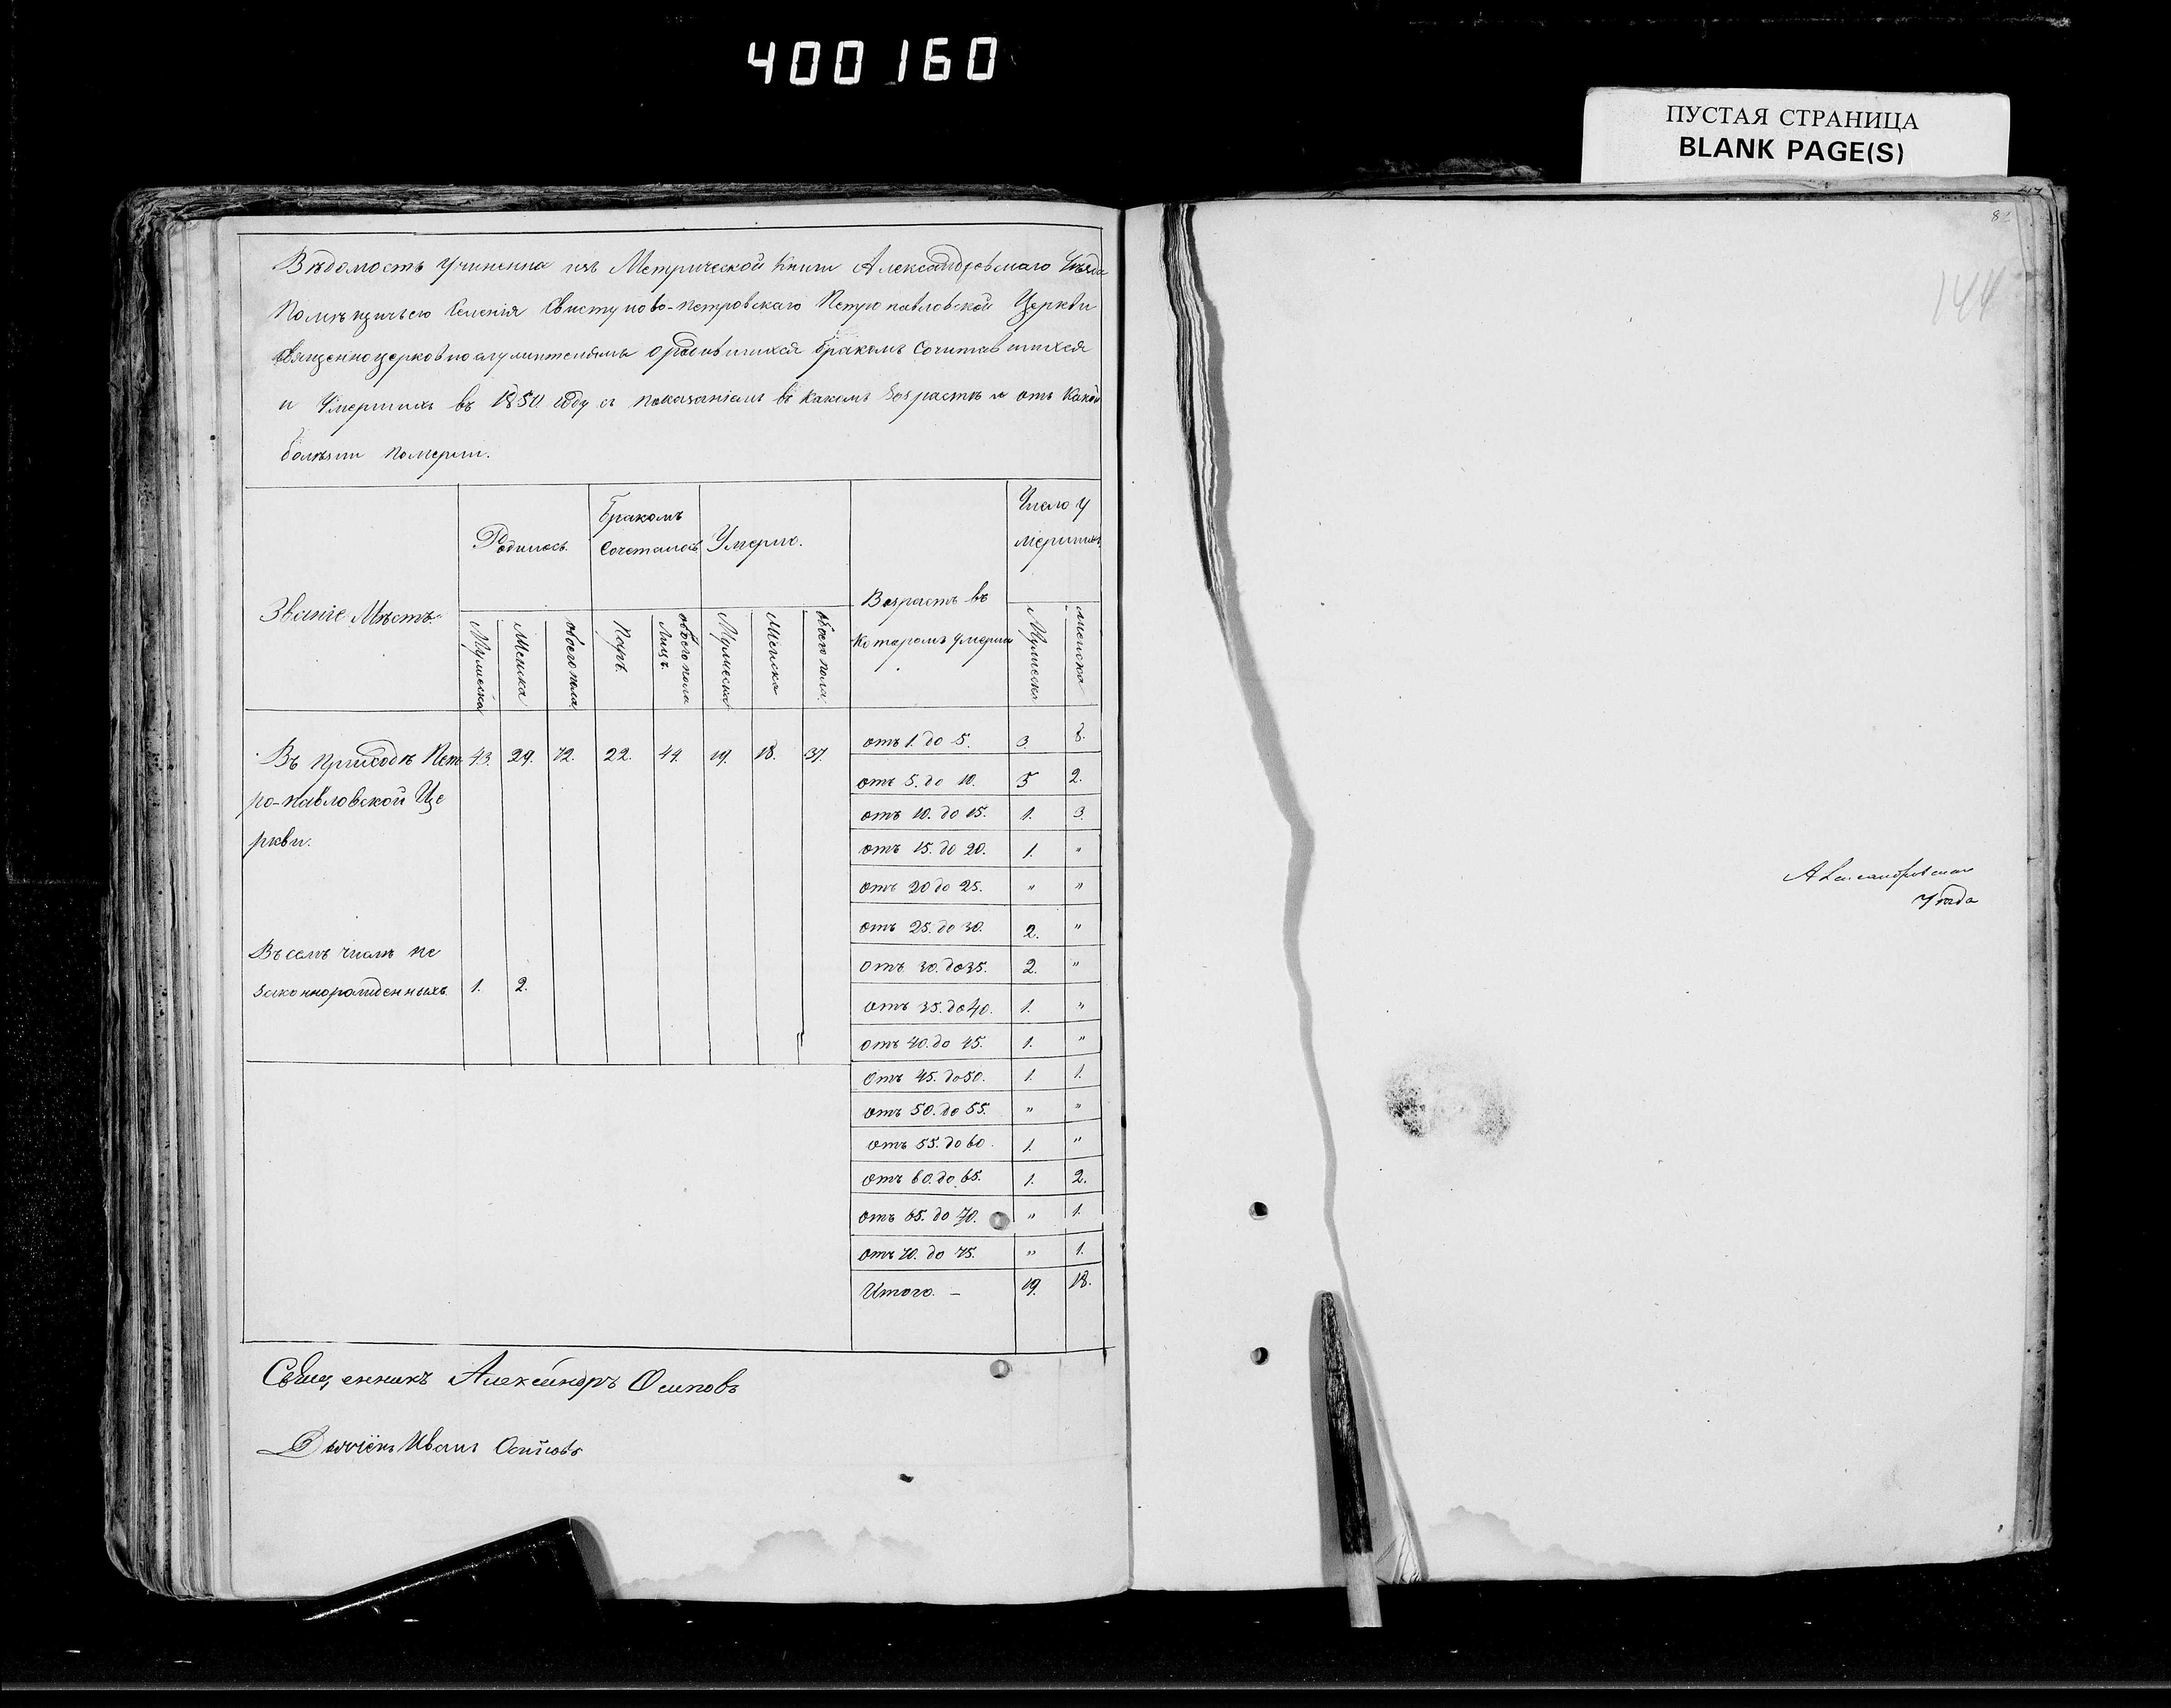 400160
ПУСТАЯ СТРАНИЦА
BLANK PAGE(S)
144
Вѣдомость учиненна изъ Метрической Книги Александровскаго Уѣзда
Помѣщичьего Селенія Свистуново-Петровскаго Петропавловской Церкви
Священноцерковнослужителями о родившихся бракомъ Сочитавшихся
и Умершихъ въ 1850 году съ показаніемъ въ какомъ Возрастѣ и отъ Какой
болѣзни померли.
Званіе Мѣстъ
Родилось.
Бракомъ
Сочеталось
Умерло.
Возрастъ въ
Которомъ умерли
Число у
мершихъ
Мужеска Женска обоего пола Паръ. обоего пола Лицъ. Мужеска Женска обоего пола. Мужеска женска
Въ Приходѣ Пет 43. 29. 72. 22. 44. 19. 18. 37.
ро-павловской Це
ркви.
Въ семъ числѣ не
законнорожденныхъ. 1. 2.
отъ 1. до 5. 3. 8.
отъ 5. до 10. 5 2.
отъ 10. до 15. 1. 3.
отъ 15. до 20. 1. "
отъ 20 до 25. " "
отъ 25. до 30. 2. "
отъ 30. до 35. 2. "
отъ 35. до 40. 1. "
отъ 40. до 45. 1. "
отъ 45. до 50. 1. 1.
отъ 50. до 55. " "
отъ 55. до 60. 1. "
отъ 60. до 65. 1. 2.
отъ 65. до 70. " 1.
отъ 70. до 75. " 1.
Итого. – 19. 18.
Священникъ Александръ Осиповъ
Дьячёкъ Иванъ Осиповъ
Александровскаго
Уѣзда